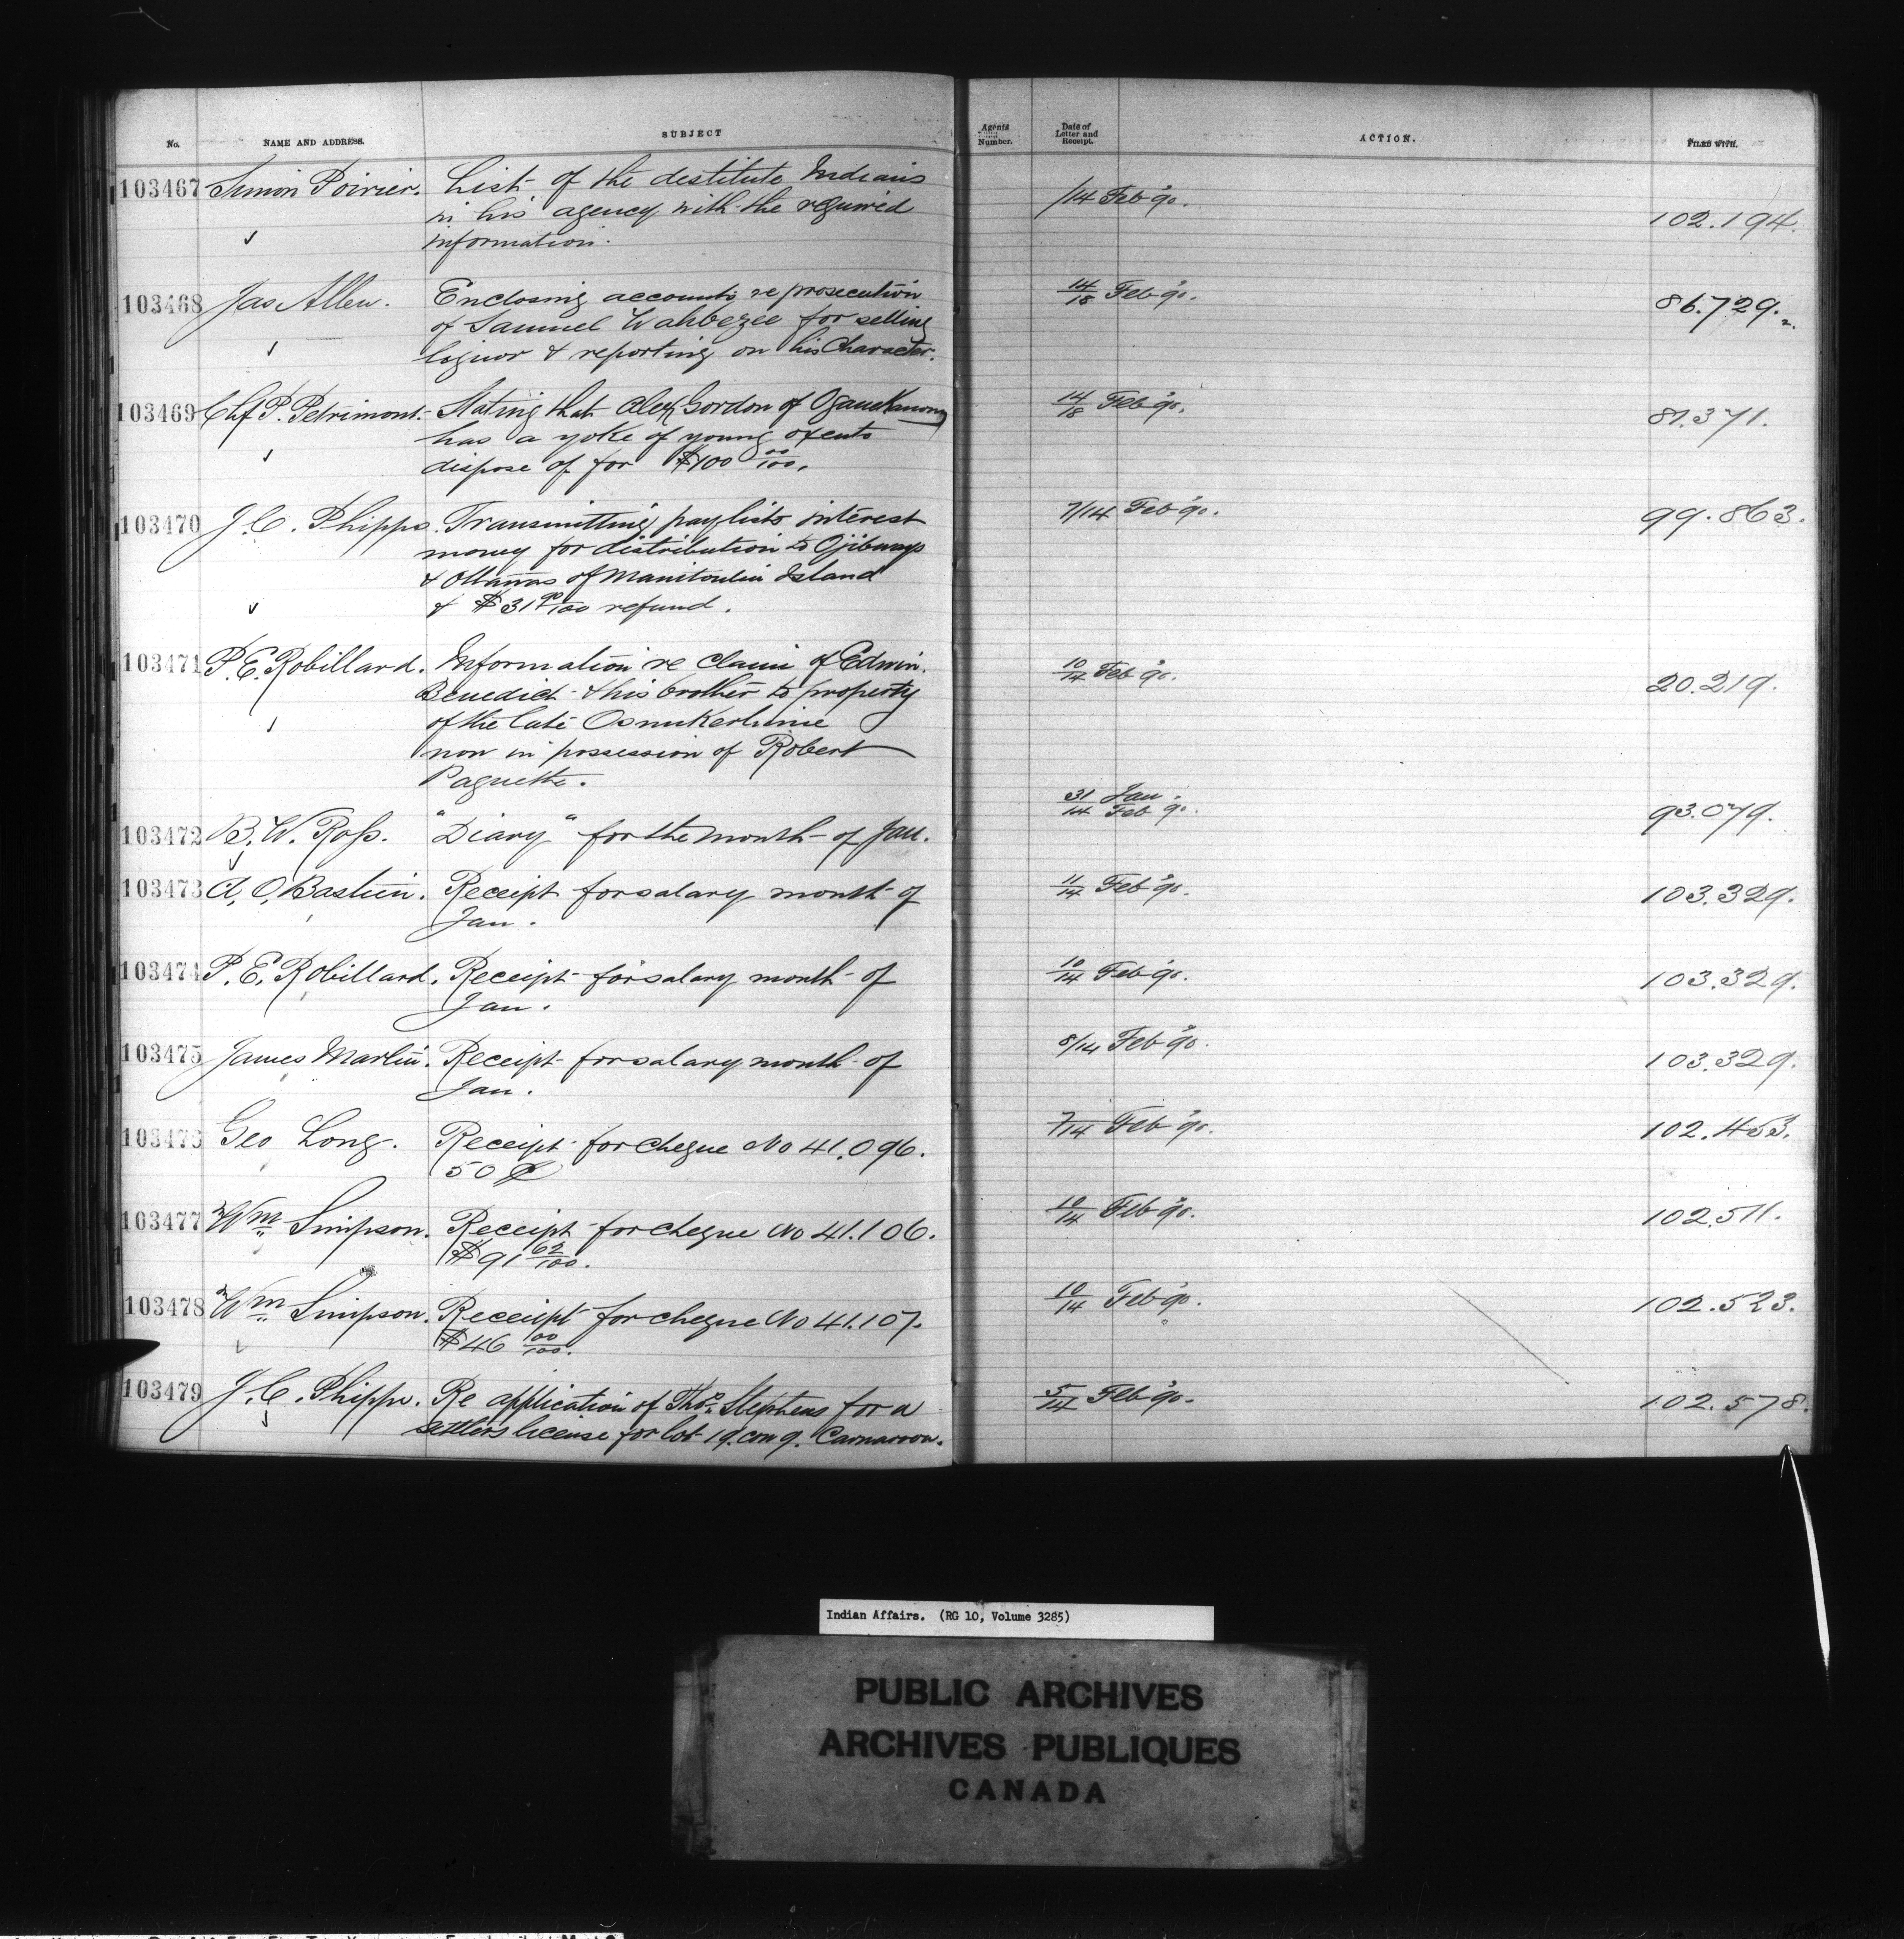 No. NAME AND ADDRESS. SUBJECT Agents Number. Date of Letter and Receipt. ACTION. FILED WITH.
103467 Simon Poirier. List of the destitute Indians /14 Feb 90. 102.194.
in his agency with the required
information.
103468 Jas Allen. Enclosing accounts re prosecution 14/18 Feb 90. 86.729.
of Samuel Wahbezee for selling
liquor & reporting on his Character.
103469 Chf P. Petrimont. Stating that Alex Gordon of 14/18 Feb 90. 81.371.
has a yoke of young oxen to
dispose of for $100 00/100.
103470 J.C. Phipps. Transmitting pay lists interest 7/14 Feb 90. 99.863.
money for distribution to Ojibways
& Ottawas of Manitoulin Island
& $31 90/100 refund.
103471 P.E. Robillard. Information re claim of Edwin 10/14 Feb 90. 20.219.
Benedict & his brother to property
of the late
now in possession of Robert
Paquette.
103472 B.W. Ross. "Diary" for the month of Jan. 31 Jan./14 Feb 90. 93.079.
103473 A.O. Bastien. Receipt for salary month of 11/14 Feb 90. 103.329.
Jan.
103474 P.E. Robillard. Receipt for salary month of 10/14 Feb 90. 103.329.
Jan.
103475 James Martin. Receipt for salary month of 8/14 Feb 90. 103.329.
Jan.
103476 Geo Long. Receipt for cheque No 41.096. 7/14 Feb 90. 102.453.
50 ¢
103477 Wm Simpson. Receipt for cheque No 41.106. 10/14 Feb 90. 102.511.
$91 62/100.
103478 Wm Simpson. Receipt for cheque No 41.107. 10/14 Feb 90. 102.523.
$46 00/100.
103479 J.C. Phipps. Re application of Thos. Stephens for a 5/14 Feb 90. 102.578.
settlers license for lot 19. con 9. Carnarvon.
Indian Affairs. (RG 10, Volume 3285)
PUBLIC ARCHIVES
ARCHIVES PUBLIQUES
CANADA